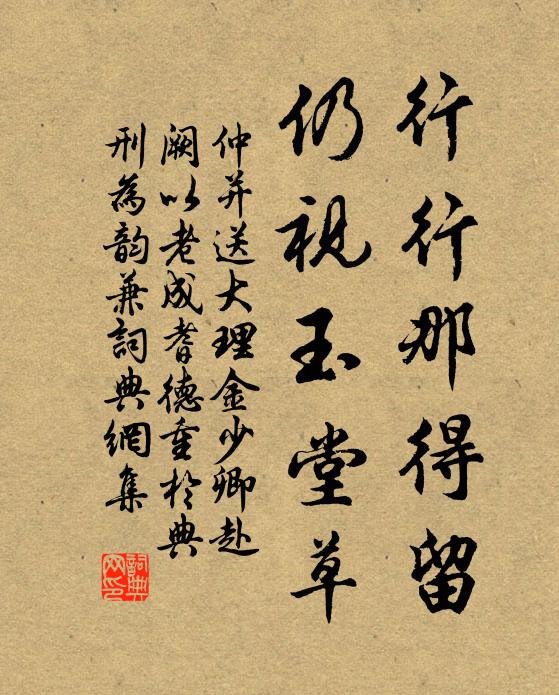 行行那得留
仍視玉堂草
仲并送大理金少卿赴
闕以老成耆德重於典
刑為韵兼詞典網集
詞典
网印